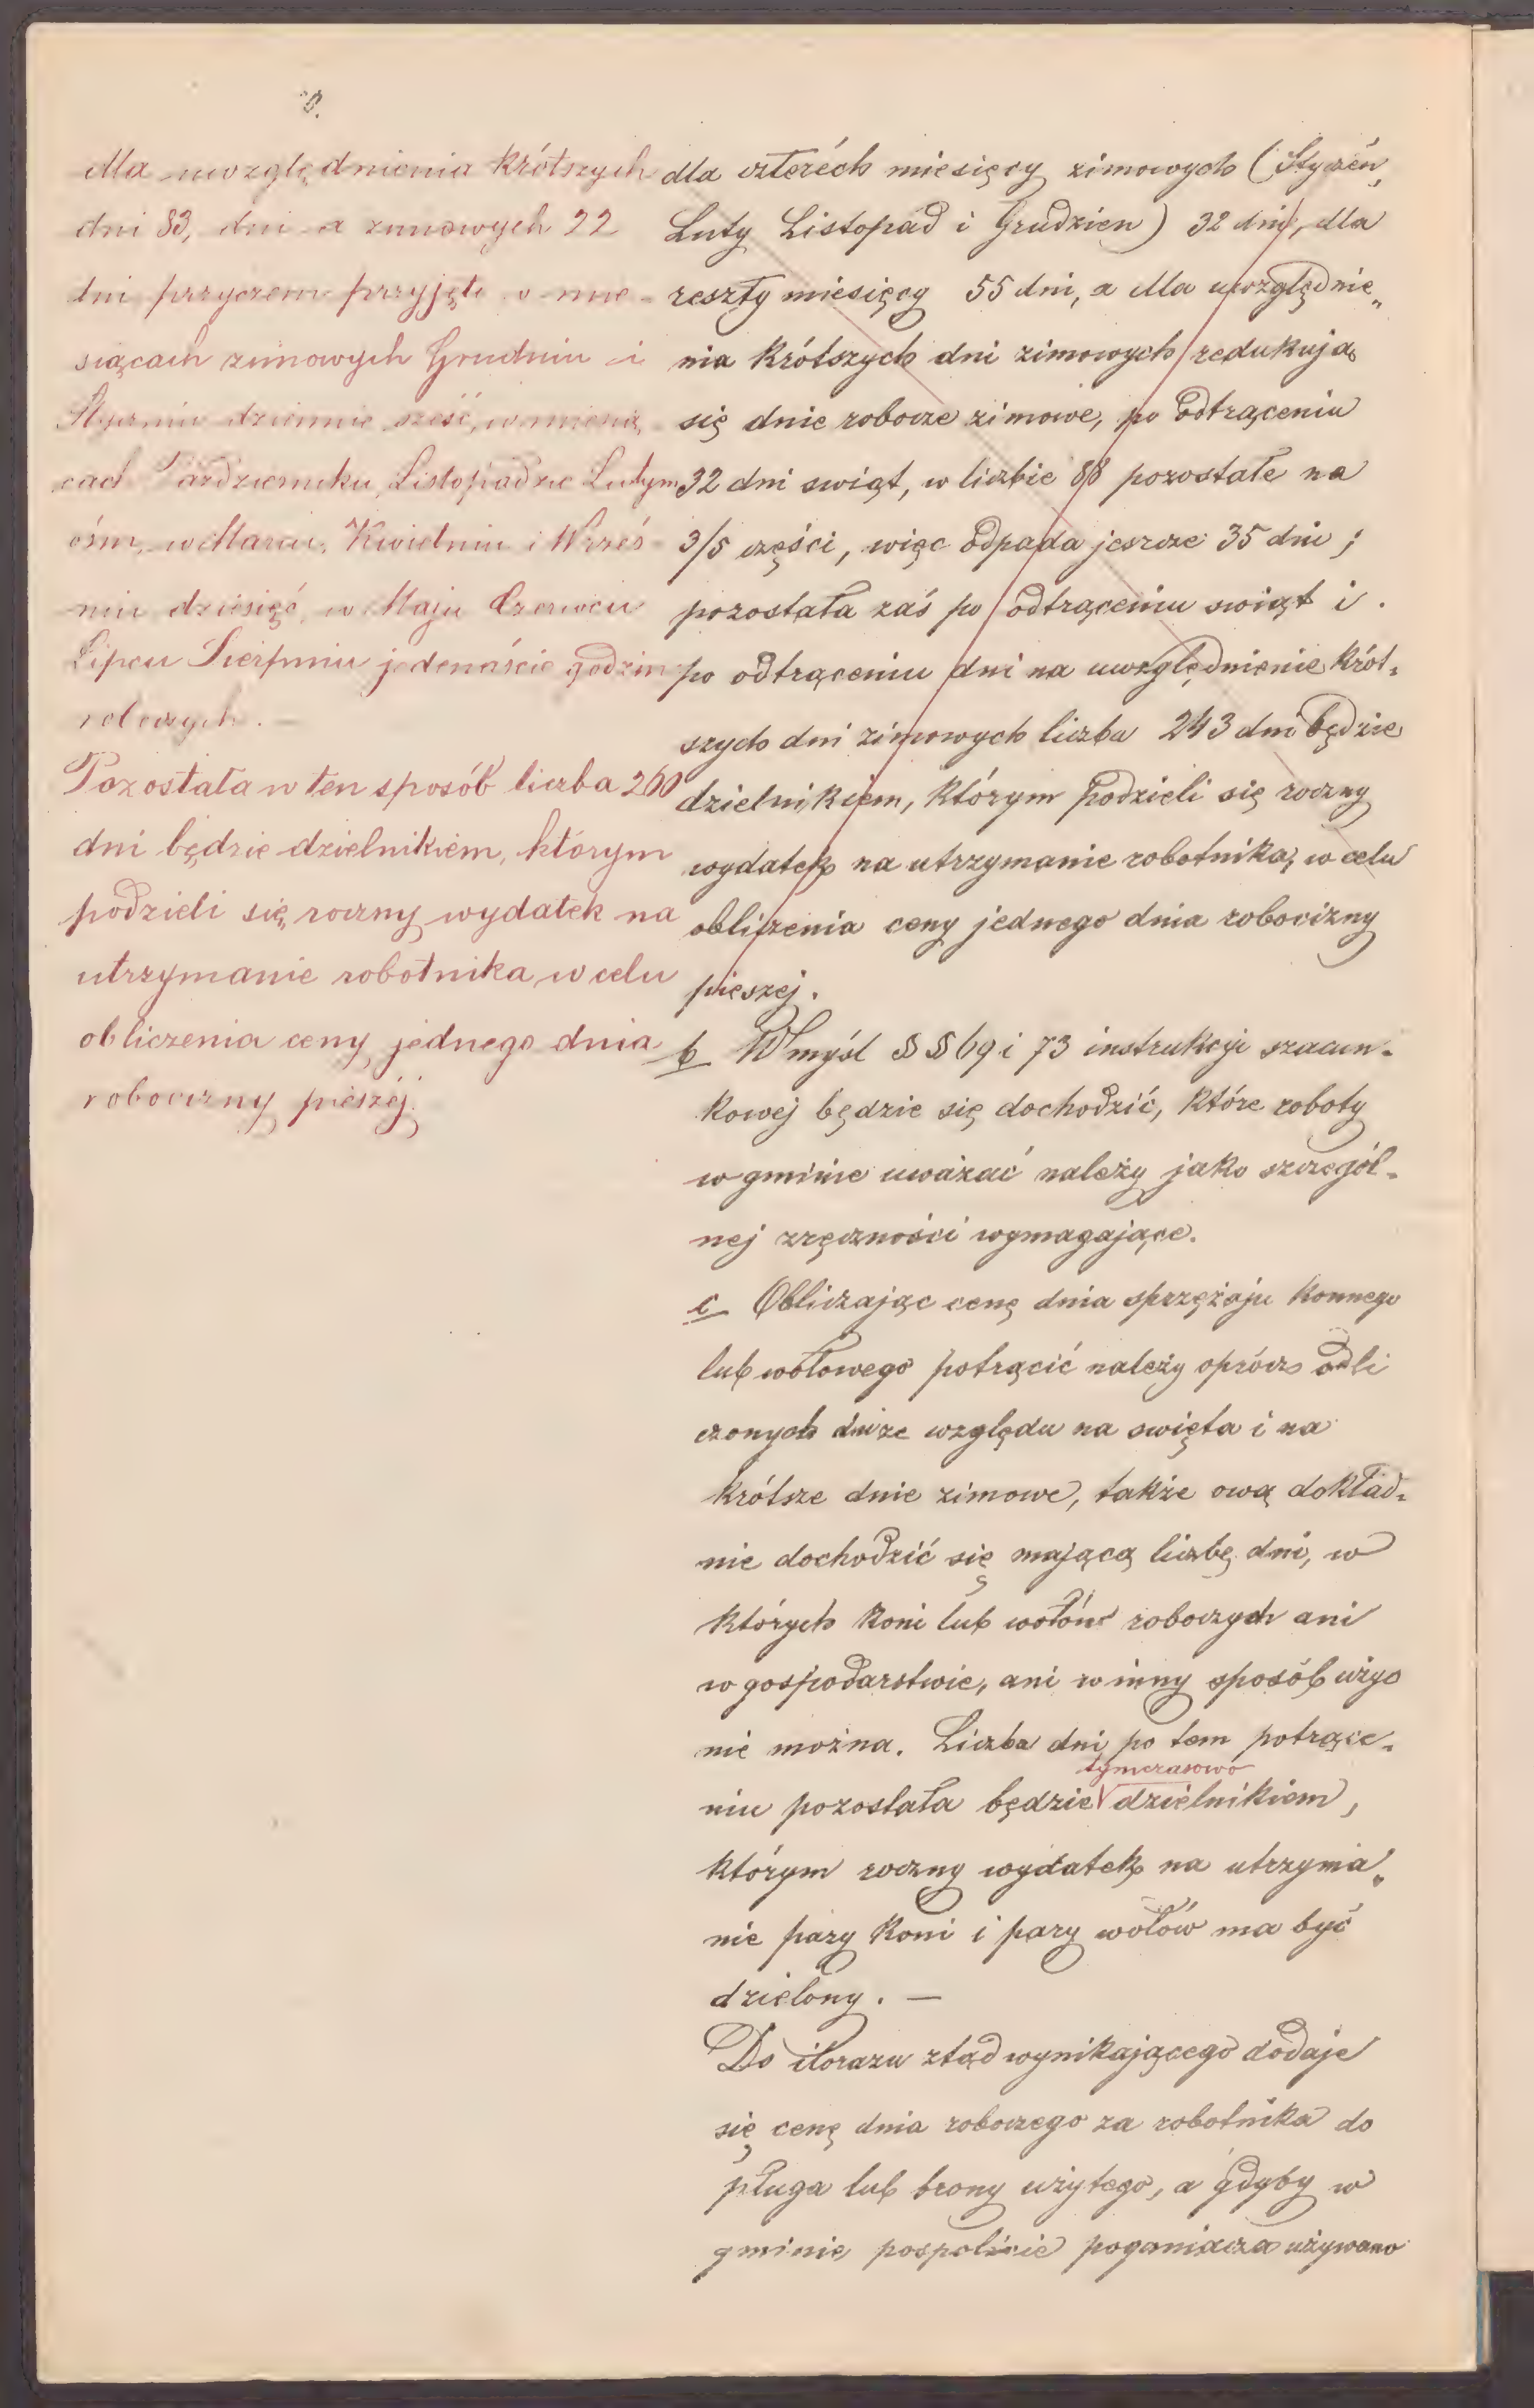 dla uwzględnienia krótszych
dni 83, dni a zimowych 22
dni przyczem przyjęto w mie-
siącach zimowych Grudniu i
Styczniu dziennie sześć, w miesią-
cach Październiku, Listopadzie Lutym
ośm, w Marcu, Kwietniu i Wrześ-
niu dziesięć, w Maju Czerwcu
Lipcu Sierpniu jedenaście godzin
roboczych. —
Pozostała w ten sposób liczba 260
dni będzie dzielnikiem, którym
podzieli się roczny wydatek na
utrzymanie robotnika, w celu
obliczenia ceny jednego dnia
robocizny pieszéj.
dla czteréch miesięcy zimowych (Styczéń,
Luty Listopad i Grudzien) 32 dni, dla
reszty miesięcy 55 dni, a dla uwzględnie„
nia krótszych dni zimowych redukują
się dnie robocze zimowe, po odtrąceniu
32 dni swiąt, w liczbie 88 pozostałe na
3/5 części, więc odpada jeszcze 35 dni;
pozostała zaś po odtrąceniu swiąt i
po odtrąceniu dni na uwzględnienie krót-
szych dni zimowych liczba 243 dni będzie
dzielnikiem, którym podzieli się roczny
wydatek na utrzymanie robotnika, w celu
obliczenia ceny jednego dnia robocizny
pieszej.
b W myśl §§ 69 i 73 instrukcyi szacun-
kowej będzie się dochodzić, które roboty
w gminie uważać należy jako szczegól-
nej zręczności wymagające.
c Obliczając cenę dnia sprzężaju konnego
lub wołowego potrącić należy oprócz odli
czonych dni ze względu na swięta i na
krótsze dnie zimowe, także ową dokład-
nie dochodzić się mającą liczbę dni, w
których koni lub wołów roboczych ani
w gospodarstwie, ani w inny sposób użyc
nie można. Liczba dni po tem potrące-
tymczasowo
niu pozostała będzie dzielnikiem,
którym roczny wydatek na utrzyma„
nie pary koni i pary wołów ma być
dzielony. —
Do ilorazu ztąd wynikającego dodaje
się cenę dnia roboczego za robotnika do
pługa lub brony użytego, a gdyby w
gminie pospolicie poganiacza używano